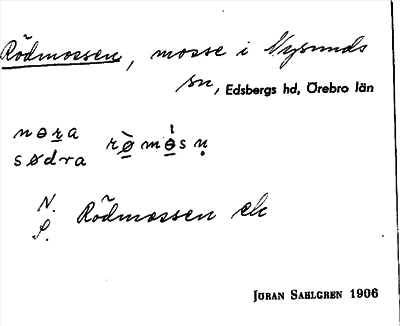 Rödmossen, mosse i Nysunds
sn, Edsbergs hd, Örebro län
nora
södra rø̀mòsn̥
N.
S. Rödmossen ek
JÖRAN SAHLGREN 1906